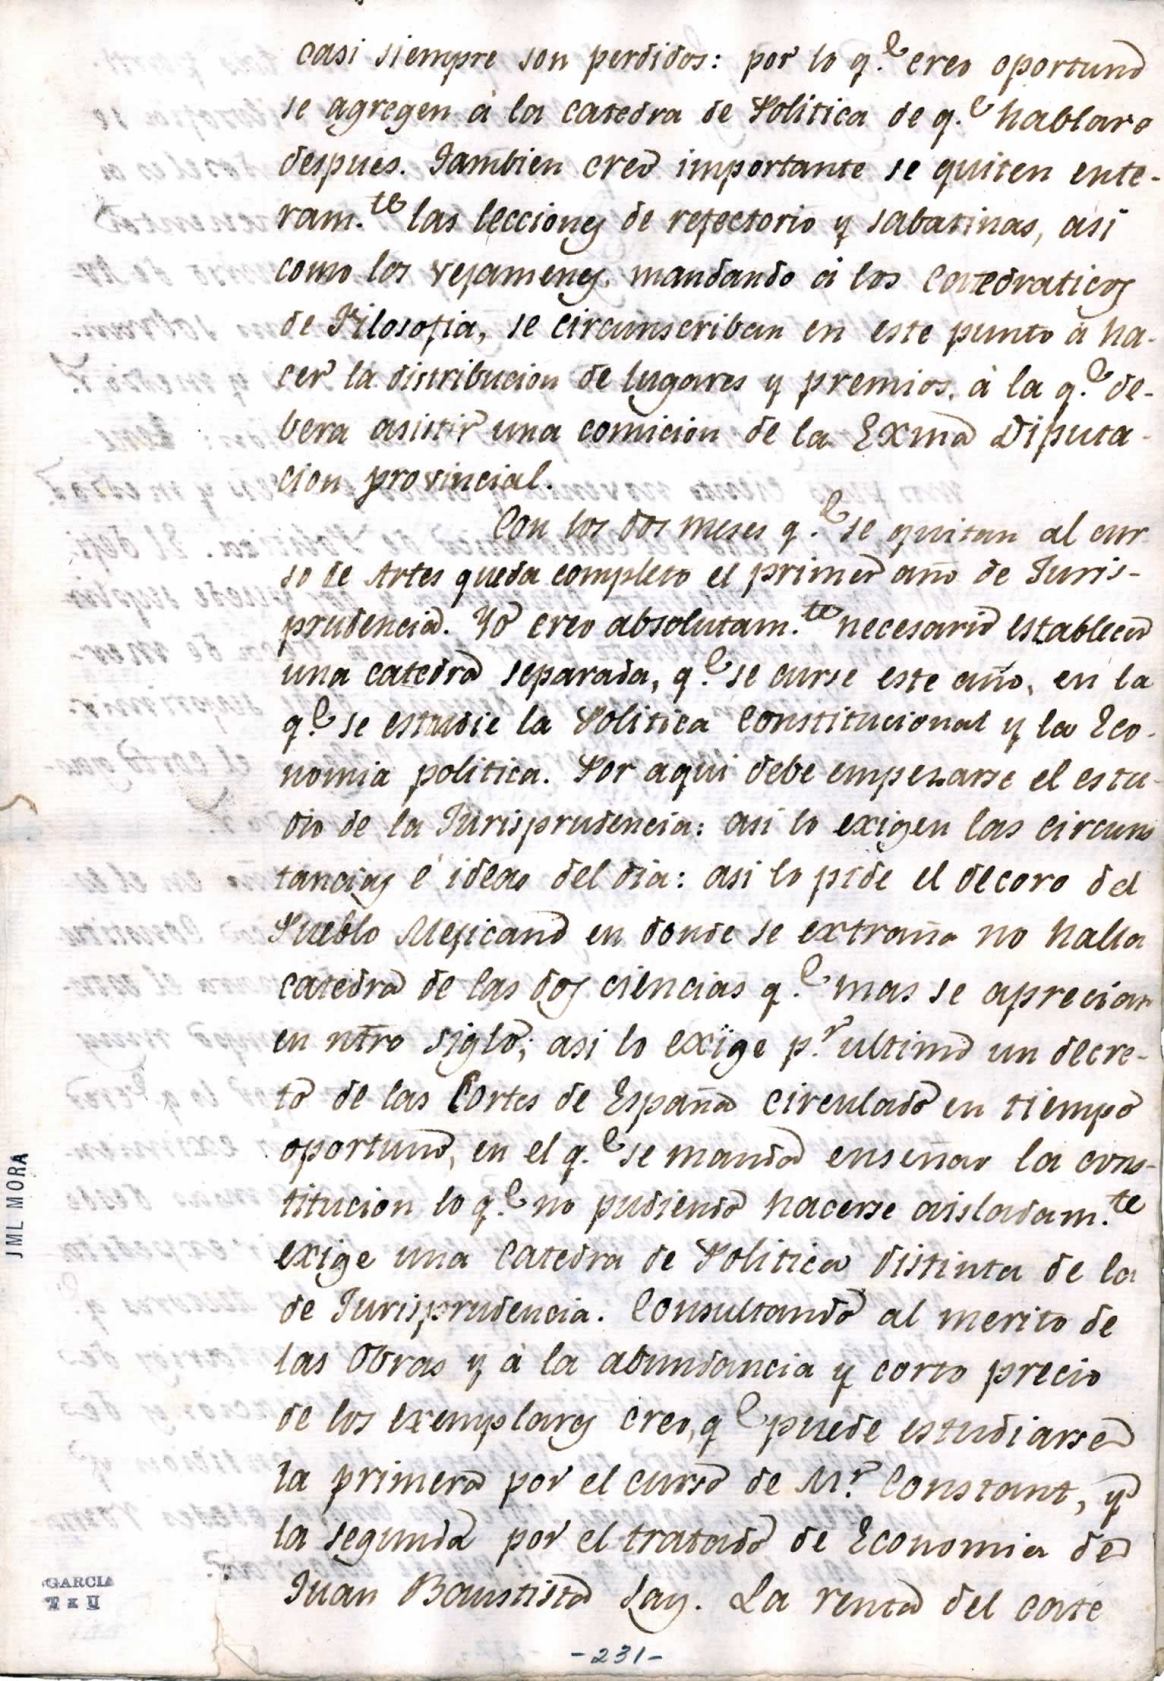 casi siempre son perdidos: por lo q.e creo oportuno
se agregen à la catedra de Politica de q.e hablare
despues. Tambien creo importante se quiten ente-
ram.te las lecciones de refectorio y sabatinas, asi
como los vejamenes. mandando à los Catedraticos
de Filosofia, se circunscriban en este punto à ha-
cer la distribucion de lugares y premios. à la q.e de-
bera asistir una comicion de la Exma Diputa-
cion provincial.
Con los dos meses q.e se quitan al cur
so de Artes queda completo el primer año de Juris-
prudencia. Yo creo absolutam.te necesario establecer
una catedra separada, q.e se curse este año, en la
q.e se estudie la Politica Constitucional y la Eco-
nomia politica. Por aqui debe empezarse el estu-
dio de la Jurisprudencia: asi lo exigen las circuns
tancias é ideas del dia: asi lo pide el decoro del
Pueblo Mejicano en donde se extraña no halla
catedra de las dos ciencias q.e mas se aprecian
en ntro siglo; asi lo exige p.r ultimo un decre-
to de las Cortes de España circulado en tiempo
oportuno, en el q.e se manda enseñar la cons-
titucion lo q.e no pudiendo hacerse aisladam.te
exige una Catedra de Politica distinta de la
de Jurisprudencia. Consultando al merito de
las Obras y à la abundancia y corto precio
de los exemplares creo, q.e puede estudiarse
la primera por el curso de M.r Constant, y
la segunda por el tratado de Economia de
Juan Bautista Say. La renta del cate
-231-
JML MORA
GARCIA